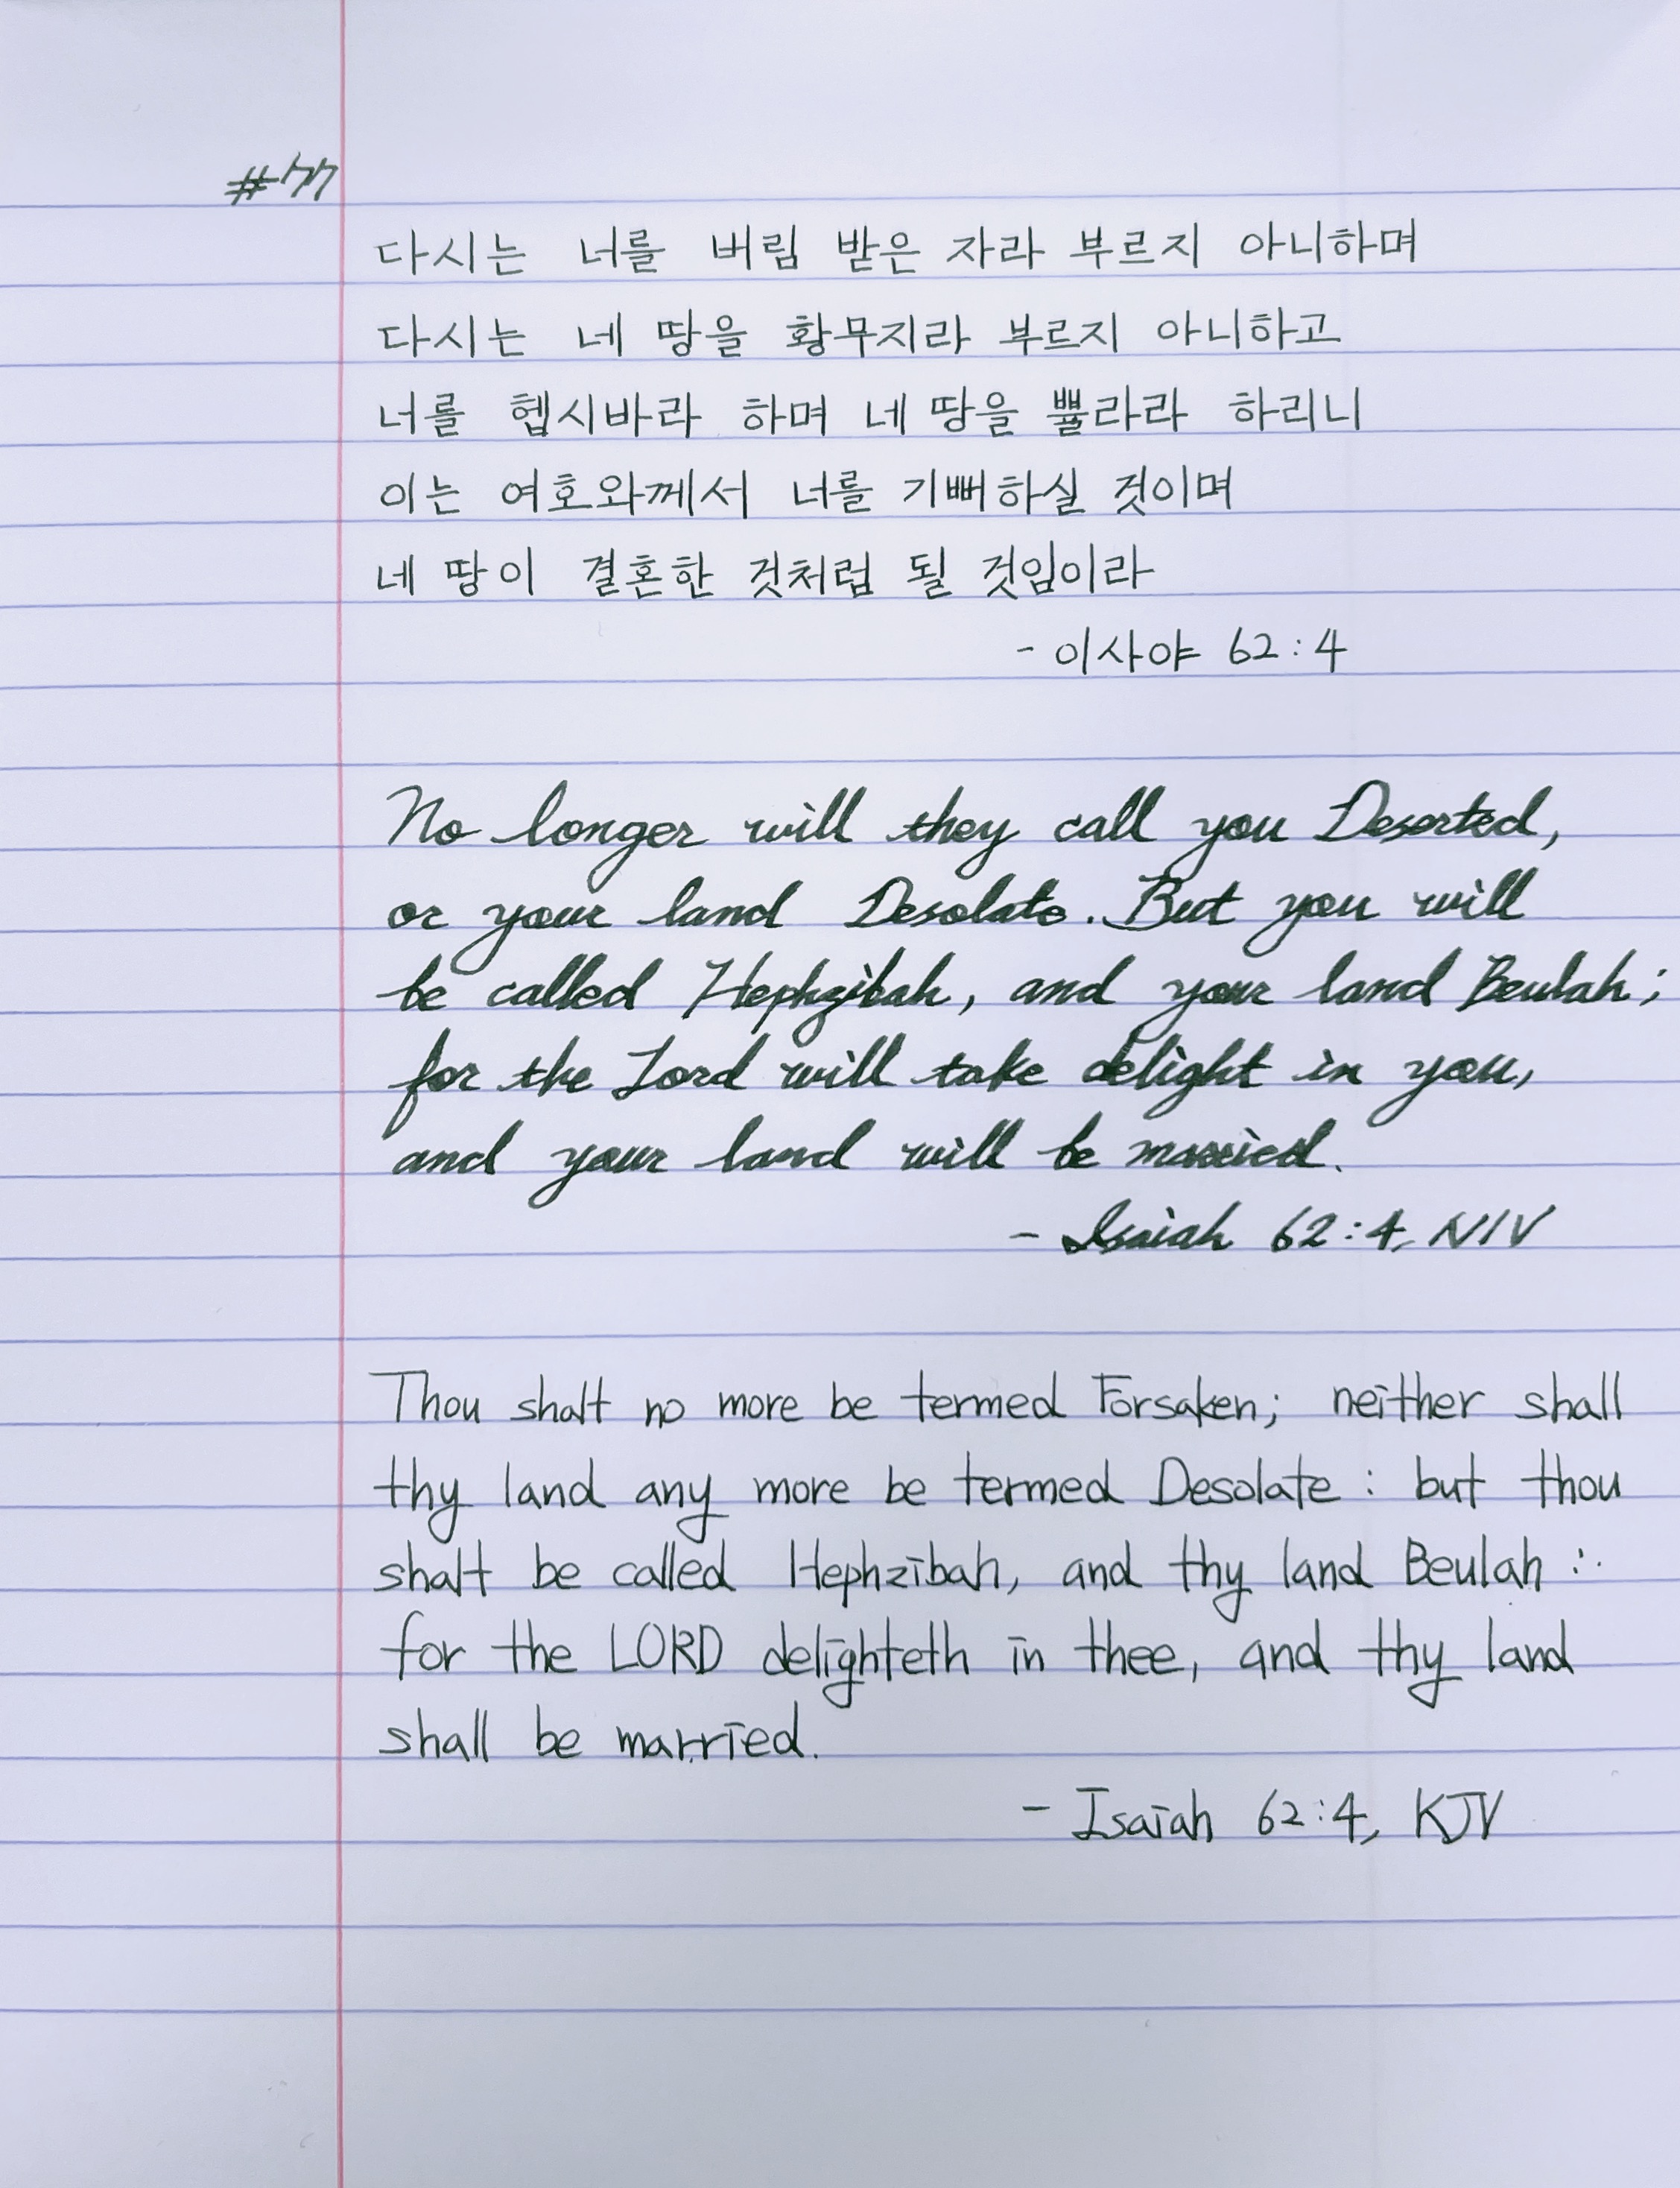 #77
다시는 너를 버림 받은 자라 부르지 아니하며
다시는 네 땅을 황무지라 부르지 아니하고
너를 헵시바라 하며 네 땅을 쁄라라 하리니
이는 여호와께서 너를 기뻐하실 것이며
네 땅이 결혼한 것처럼 될 것임이라
- 이사야 62:4
No longer will they call you Deserted,
or your land Desolate. But you will
be called Hephzibah, and your land Beulah;
for the Lord will take delight in you,
and your land will be married.
- Isaiah 62:4, NIV
Thou shalt no more be termed Forsaken; neither shall
thy land any more be termed Desolate : but thou
shalt be called Hephzibah, and thy land Beulah :
for the LORD delighteth in thee, and thy land
shall be married.
- Isaiah 62:4, KJV